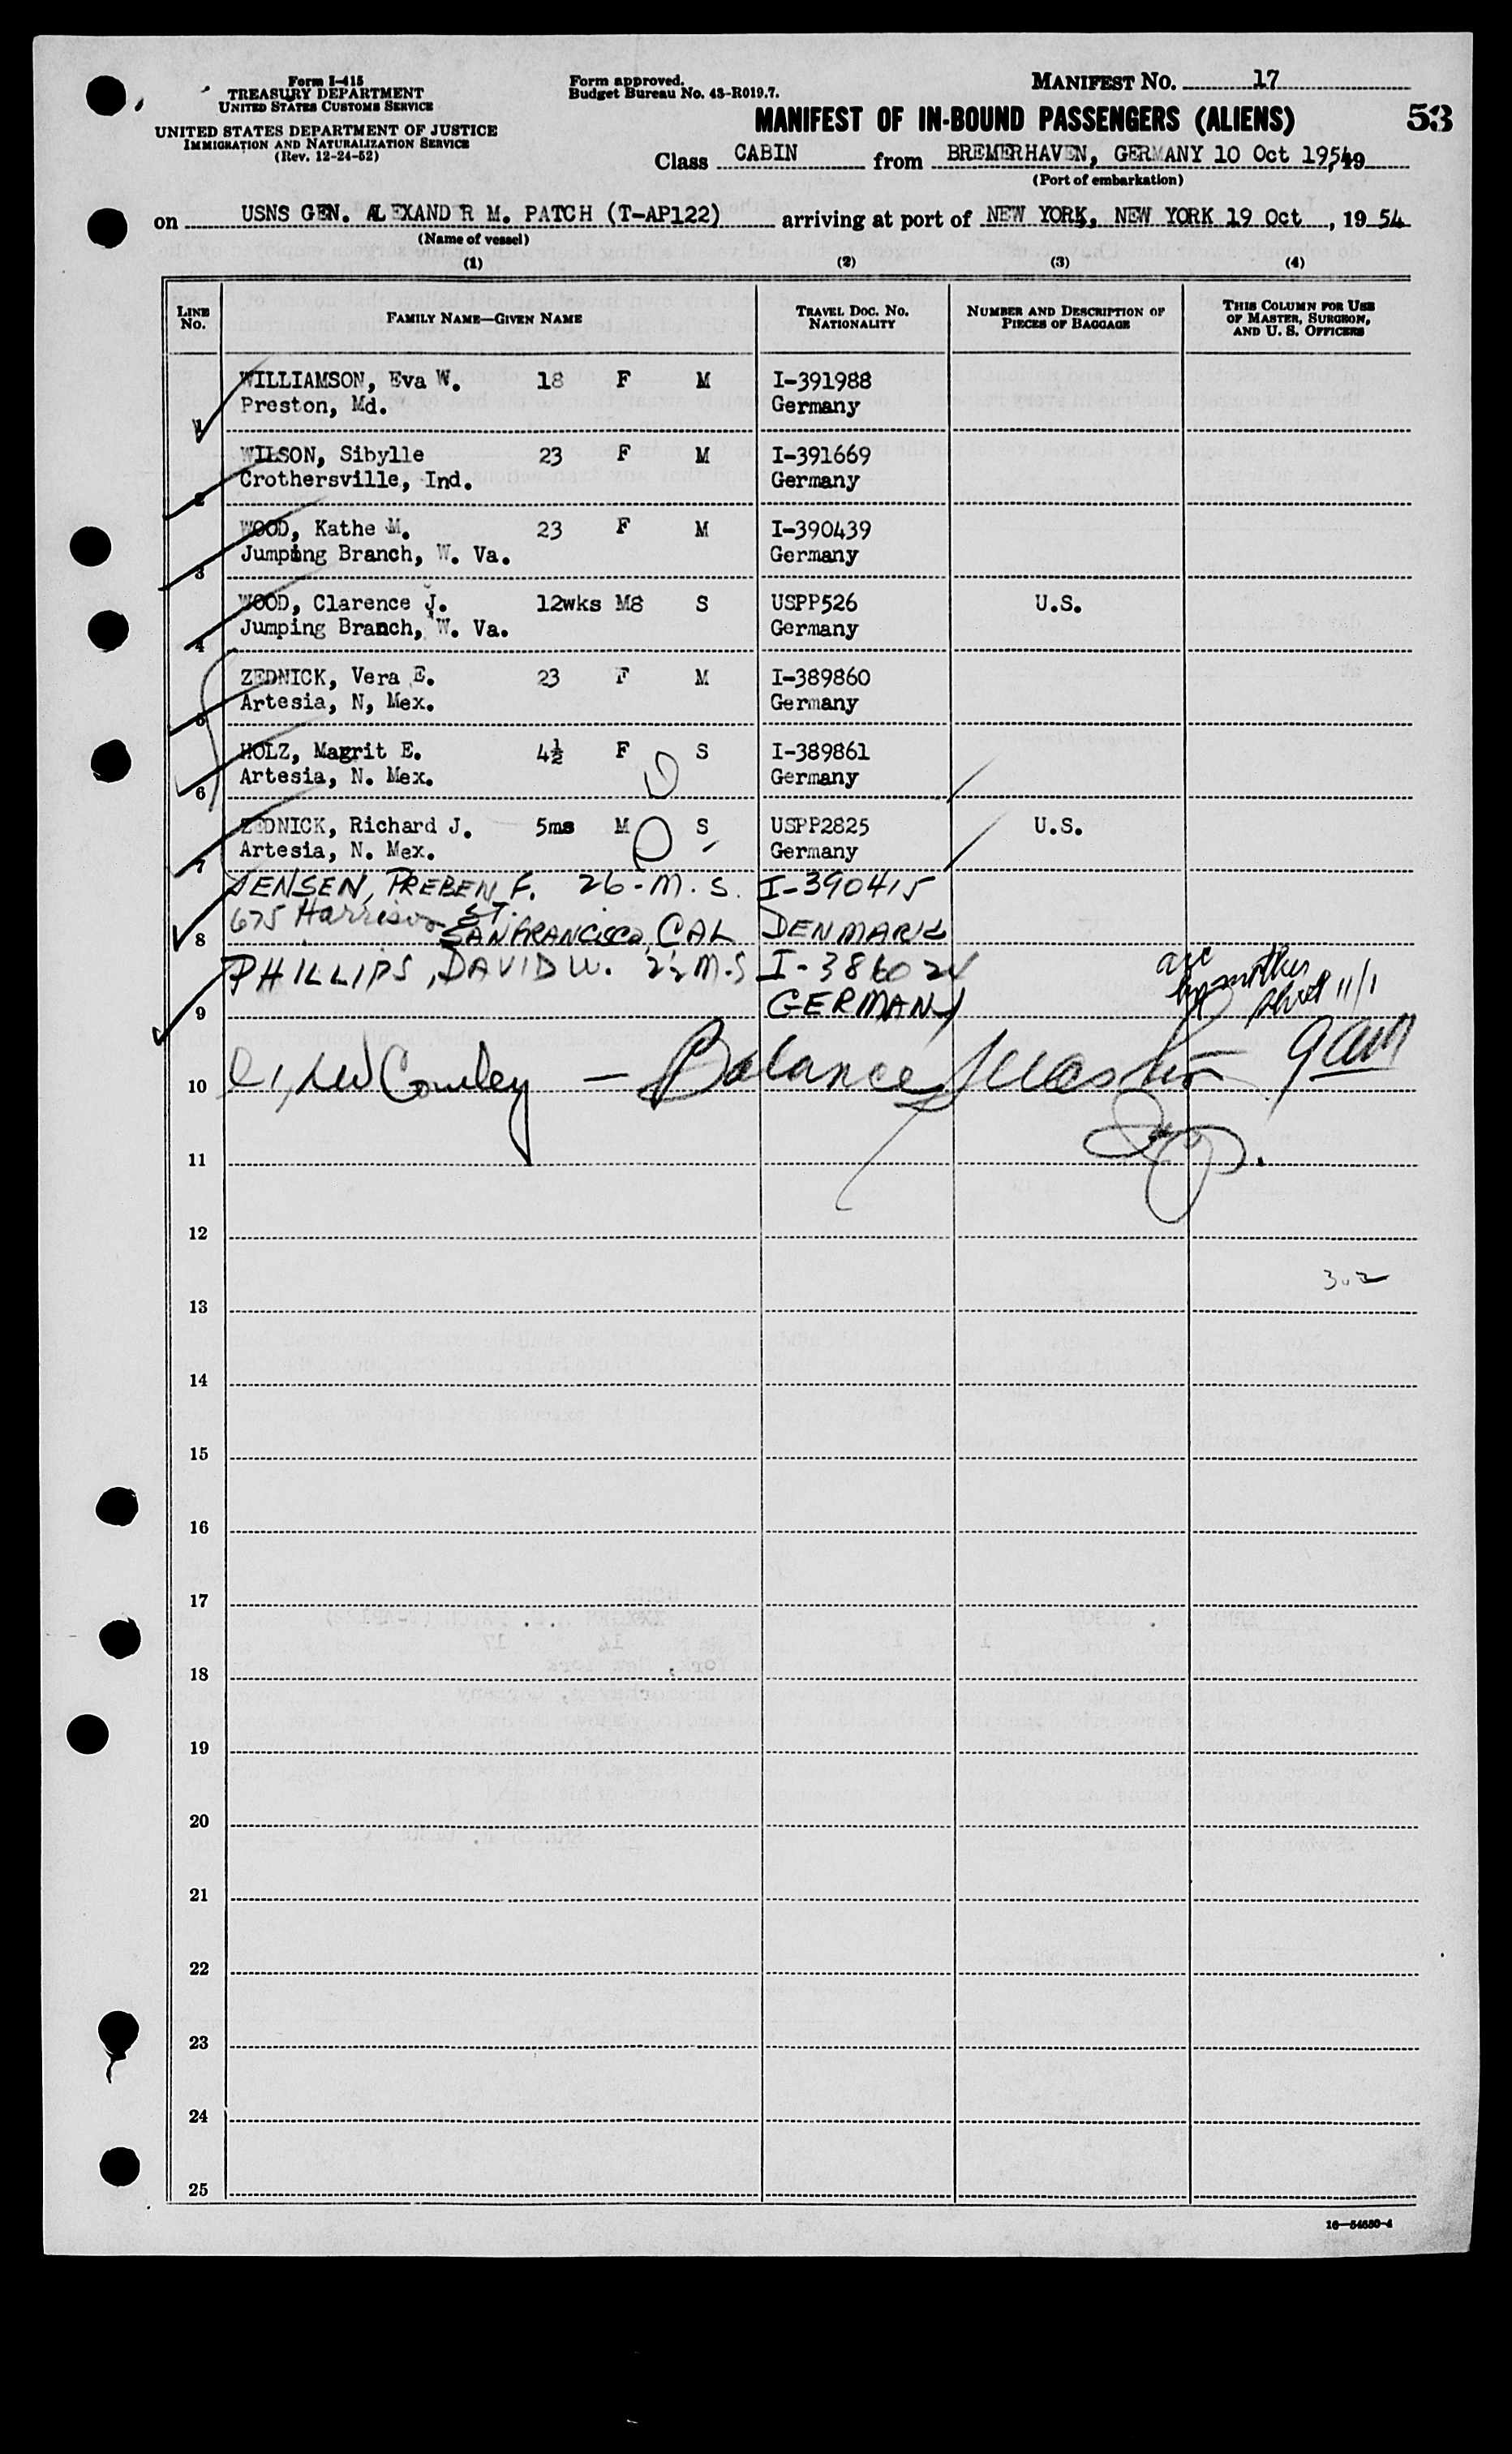 Form I-415
TREASURY DEPARTMENT
UNITED STATES CUSTOMS SERVICE
UNITED STATES DEPARTMENT OF JUSTICE
IMMIGRATION AND NATURALIZATION SERVICE
(Rev. 12-24-52)
Form approved.
Budget Bureau No. 43-R019.7.
MANIFEST NO. 17
MANIFEST OF IN-BOUND PASSENGERS (ALIENS) 53
Class CABIN from BREMERHAVEN, GERMANY 10 Oct 1954, 19
(Port of embarkation)
on USNS GEN. ALEXAND R M. PATCH (T-AP122) arriving at port of NEW YORK, NEW YORK 19 Oct, 19 54
(Name of vessel)
(1) (2) (3) (4)
LINE NO. FAMILY NAME—GIVEN NAME TRAVEL DOC. NO. NATIONALITY NUMBER AND DESCRIPTION OF PIECES OF BAGGAGE THIS COLUMN FOR USE OF MASTER, SURGEON, AND U. S. OFFICERS
WILLIAMSON, Eva W. 18 F M I-391988
1 Preston, Md. Germany
WILSON, Sibylle 23 F M I-391669
2 Crothersville, Ind. Germany
WOOD, Kathe M. 23 F M I-390439
3 Jumping Branch, W. Va. Germany
WOOD, Clarence J. 12wks M8 S USPP526 U.S.
4 Jumping Branch, W. Va. Germany
ZEDNICK, Vera E. 23 F M I-389860
5 Artesia, N, Mex. Germany
HOLZ, Magrit E. 4½ F S I-389861
6 Artesia, N. Mex. Germany
ZEDNICK, Richard J. 5ms M S USPP2825 U.S.
7 Artesia, N. Mex. Germany
JENSEN, PREBEN F. 26-M. S. I-390415
8 675 Harrison ST. SANFRANCISCO, CAL DENMARK
PHILLIPS, DAVID W. 2½ M.S I-386024
9 GERMANY
10 Balance
11
12
13
14
15
16
17
18
19
20
21
22
23
24
25
16—54680-4